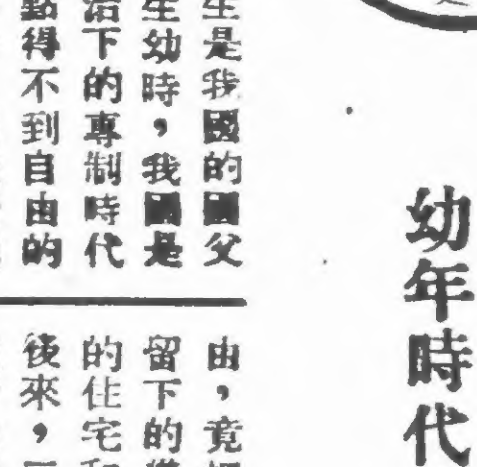 幼年時代
生是我國的國父
生幼時，我國是
治下的專制時代
點得不到自由的
由，竟
留下的
的住宅和
後來，